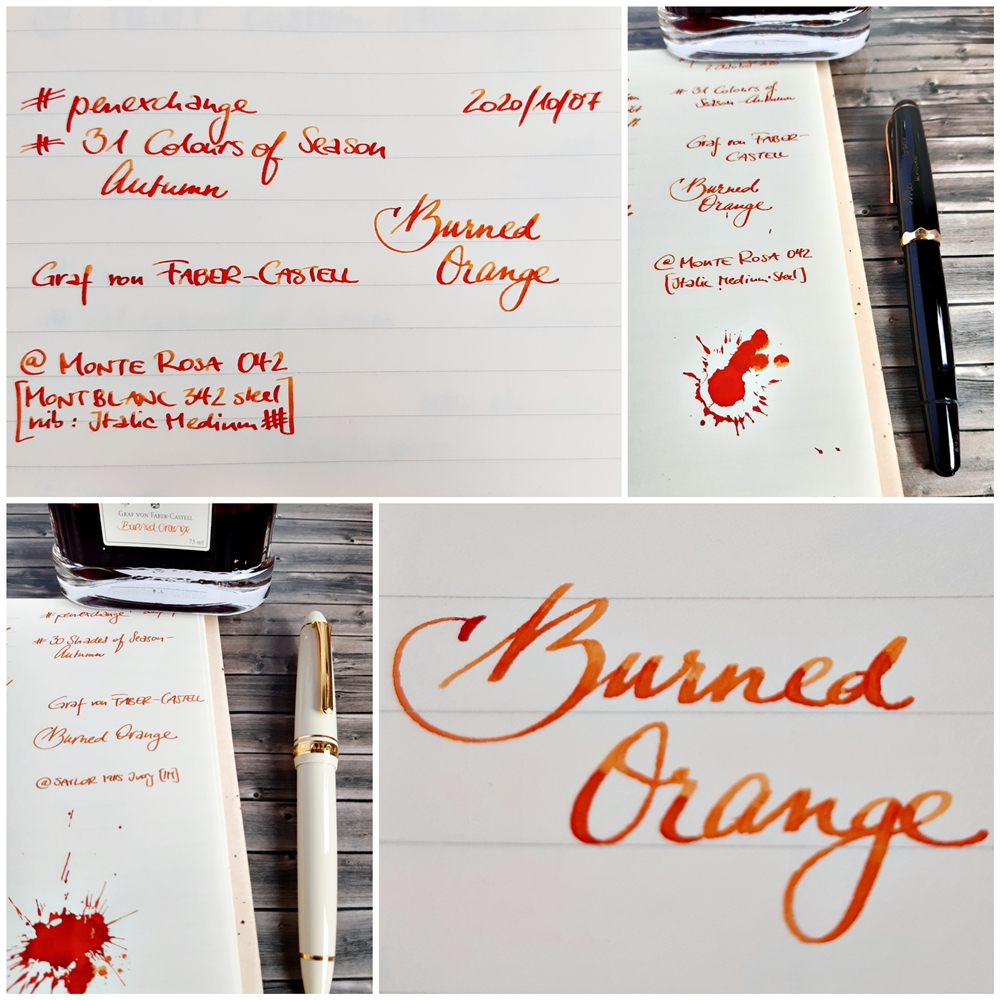 # penexchange 2020/10/07
# 31 Colours of Season
Autumn
Burned
Orange
Graf von FABER-CASTELL
@ MONTE ROSA 042
[MONTBLANC 342 steel
nib: Italic Medium #]
# 31 Colours of
Season-Autumn
Graf von FABER-
CASTELL
Burned
Orange
@ MONTE ROSA 042
[Italic Medium Steel]
GRAF VON FABER-CASTELL
Burned Orange
75 ml
#penexchange
# 30 Shades of Season-
Autumn
Graf von FABER-CASTELL
Burned Orange
@ SAILOR 1911S Ivory [M]
Burned
Orange